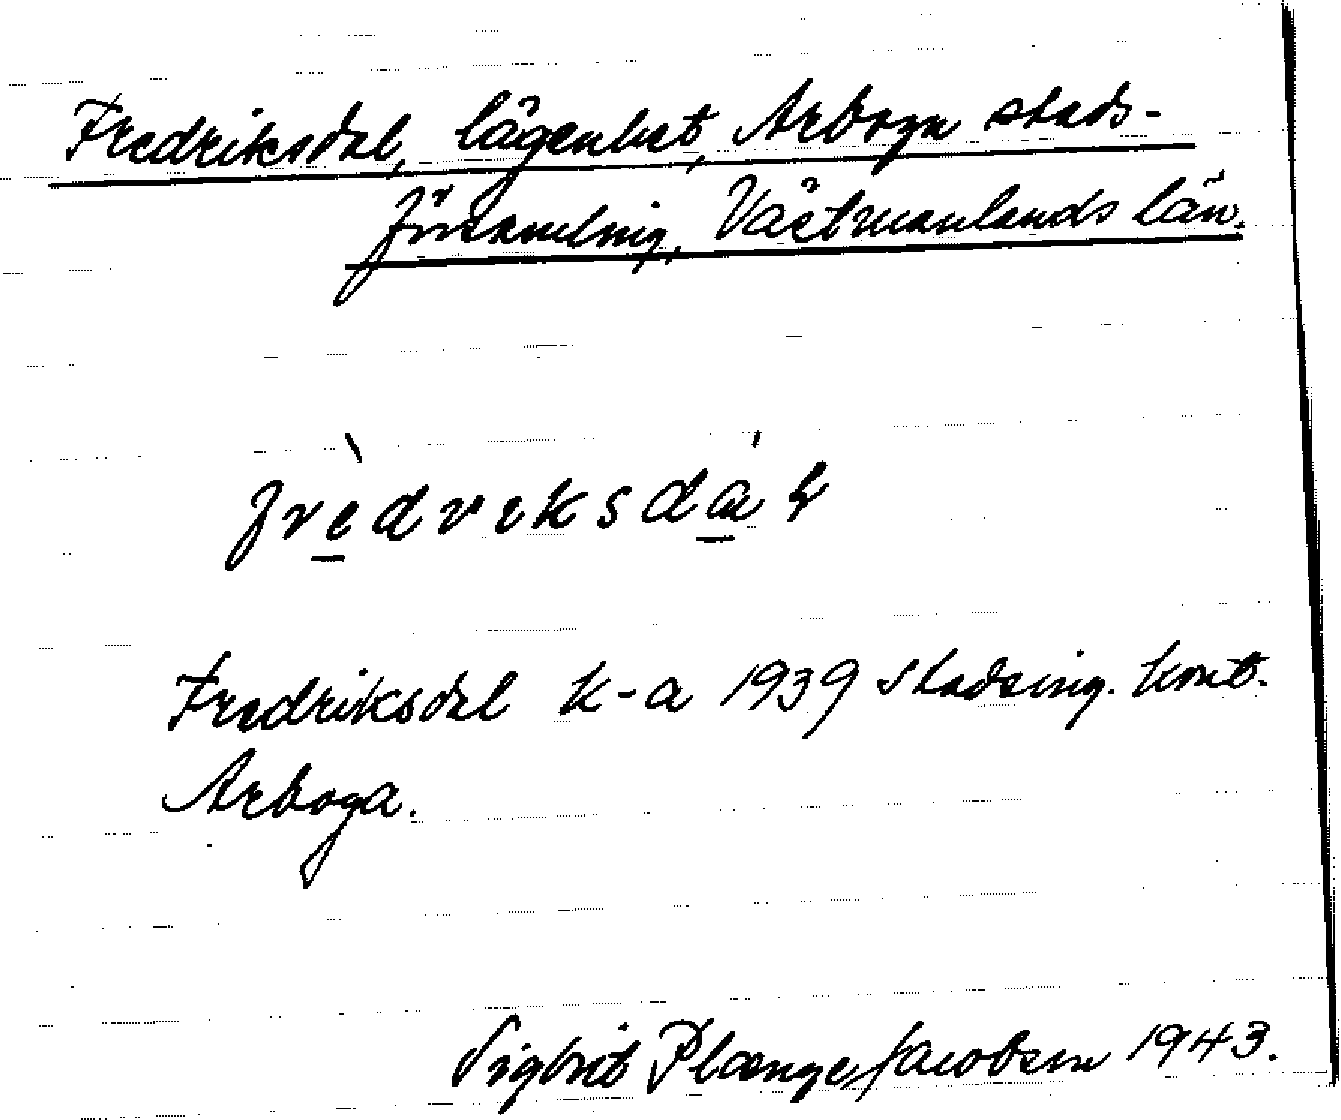 Fredriksdal, lägenhet, Arboga stads-
församling, Västmanlands län.
frèdrɩksdáɬ
Fredriksdal k-a 1939 Stadsing. kont.
Arboga.
Sigbrit Plænge Jacobson 1943.